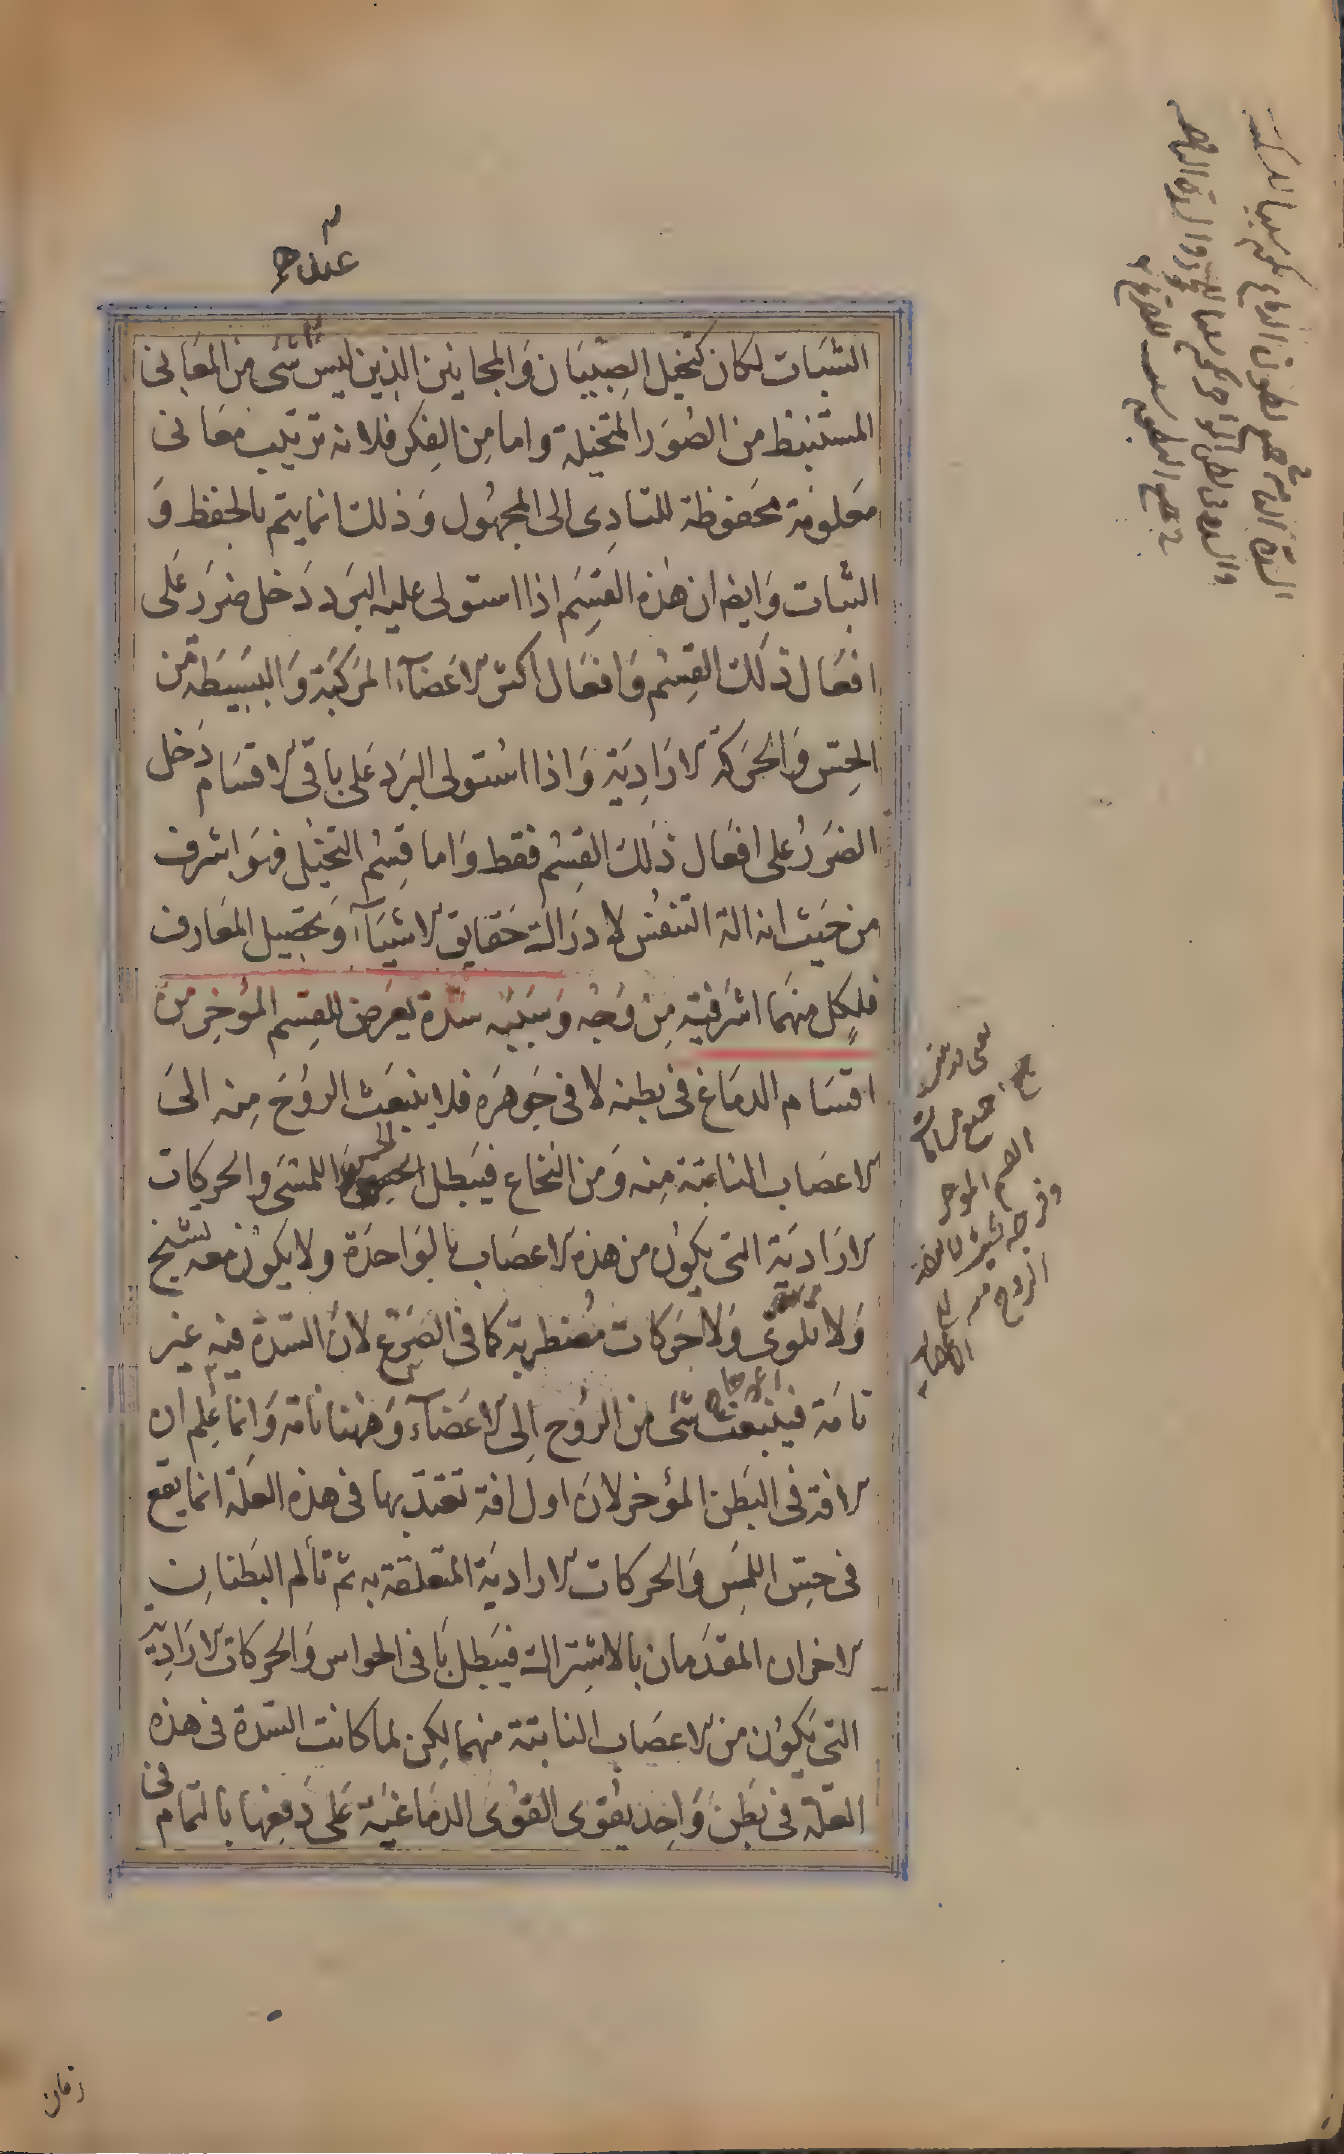 عندهم
الثبات لكان كتخيل الصبيان والمجانين الذين ليس شئ من المعانى
المستنبط من الصور المتخيلة واما من الفكر فلانه ترتيب معانى
معلومة محفوظة للتادى الى المجهول وذلك انما يتم بالحفظ و
الثبات وايضا ان هذه القسم اذا استولى عليه البرد دخل ضرر على
افعال ذلك القسم وافعال اكثر الاعضاء المركبة والبسيطة من
الحس والحركة الارادية واذا استولى البرد على باقى الاقسام دخل
الضرر على افعال ذلك القسم فقط واما قسم التخيل فهو اشرف
من حيث انه الة التنفس لادراك حقايق الاشياء وتحصيل المعارف
فلكل منهما اشرفية من وجه وسببه سدة يعرض للقسم المؤخر من
اقسام الدماغ فى بطنه لا فى جوهره فلا ينبعث الروح منه الى
الاعصاب النابتة منه ومن النخاع فيبطل الحس اللمسى والحركات
الارادية التى يكون من هذه الاعصاب بالواحدة ولا يكون معه تشنج
ولا تلوى ولا حركات مضطربة كما فى الصرع لان السدة فيه غير
تامة فينبعث شئ من الروح الى الاعضاء وههنا تامة وانما علم ان
الافة فى البطن المؤخر لان اول افة تعتد بها فى هذه العلة انما يقع
فى حس اللمس والحركات الارادية المتعلقة به ثم تألم البطنان
الاخران المقدمان بالاشتراك فيبطل باقى الحواس والحركات الارادية
التى يكون من الاعصاب النابتة منهما لكن لما كانت السدة فى هذه
العلة فى بطن واحد يقوى القوى الدماغية على دفعها بالتمام فى
القسم المؤخر
الروح منه الى
الاعصاب
زمان